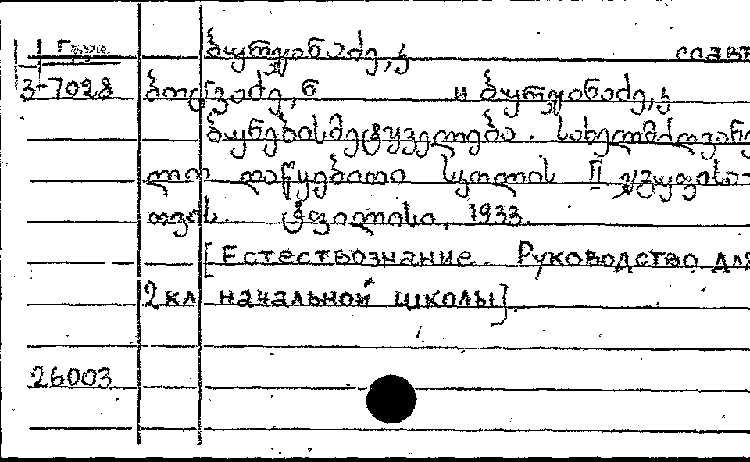 Груз. ბურჯანაძე, კ соавт
3-7028 ბოცვაძე, ნ и ბურჯანაძე, კ
ბუნებისმეტყველება. სახელმძღვანე
ლო დაწყებითი სკოლის II ჯგუფისა
თვის. ტფილისი, 1933.
[Естествознание. Руководство для
2 кл начальной школы]
26003